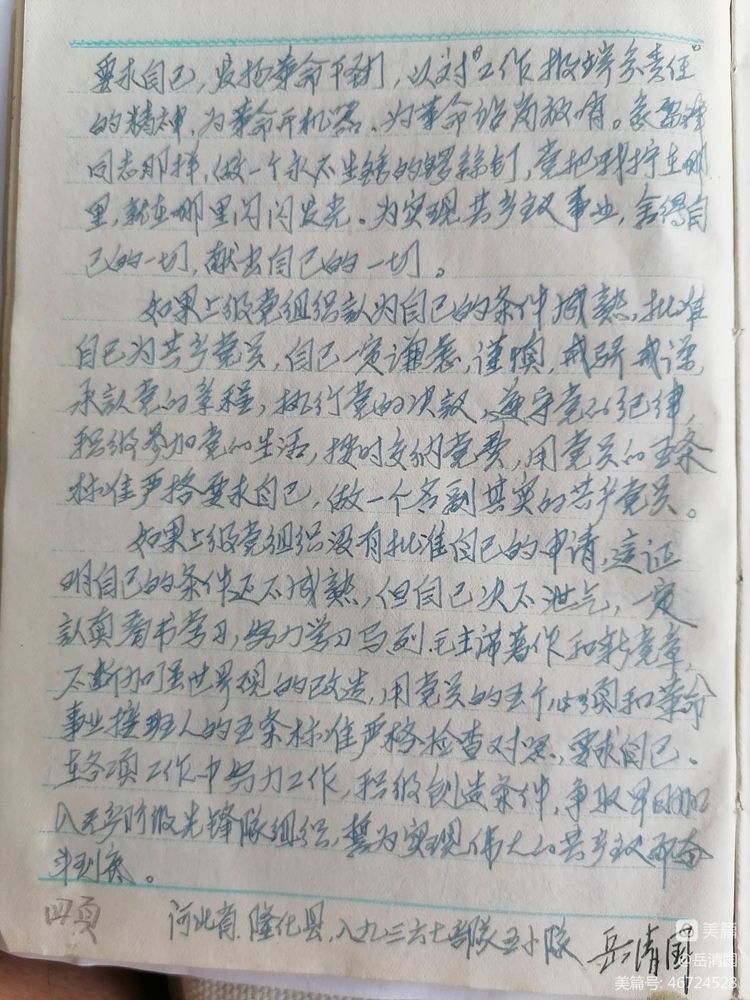 要求自己,发扬革命干劲,以对工作极端负责任
的精神,为革命开机器,为革命站岗放哨。象雷锋
同志那样,做一个永不生锈的螺丝钉,党把我拧在哪
里,就在哪里闪闪发光。为实现共产主义事业,舍得自
己的一切,献出自己的一切。
如果上级党组织认为自己的条件成熟,批准
自己为共产党员,自己一定谦虚,谨慎,戒骄戒躁,
承认党的章程,执行党的决议,遵守党的纪律,
积极参加党的生活,按时交纳党费,用党员的五条
标准严格要求自己,做一个名副其实的共产党员。
如果上级党组织没有批准自己的申请,这证
明自己的条件还不成熟,但自己决不泄气,一定
认真看书学习,努力学习马列、毛主席著作和新党章,
不断加强世界观的改造,用党员的五个必须和革命
事业接班人的五条标准严格检查对照,要求自己。
在各项工作中努力工作,积极创造条件,争取早日加
入无产阶级先锋队组织,誓为实现伟大的共产主义而奋
斗到底。
四页
河北省.隆化县,八九三六七部队五小队 岳清国
美篇
@岳清国
美篇号: 46724528